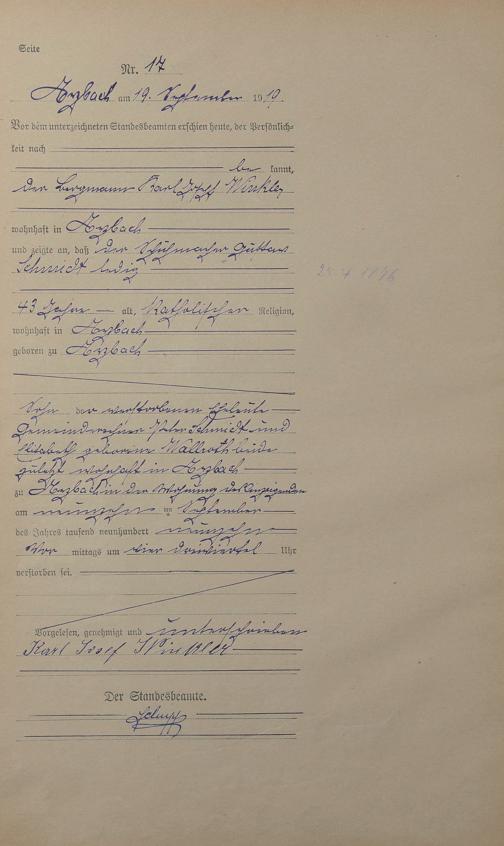 Seite
Nr. 17
Arzbach am 19. September 1919.
Vor dem unterzeichneten Standesbeamten erschien heute, der Persönlich-
keit nach
be kannt,
der Bergmann Karl Josef Winkler
wohnhaft in Arzbach
und zeigte an, daß der Schuhmacher Gustav
Schmidt ledig
43 Jahre alt, katholischer Religion,
wohnhaft in Arzbach
geboren zu Arzbach
Sohn der verstorbenen Eheleute
Gemeinderechner Peter Schmidt und
Elisabeth geborene Wallroth beide
zuletzt wohnhaft in Arzbach
zu Arzbach in der Wohnung des Anzeigenden
am neunzehn ten September
des Jahres tausend neunhundert neunzehn
Vor mittags um vier dreiviertel Uhr
verstorben sei.
Vorgelesen, genehmigt und unterschrieben
Karl Josef Winkler
Der Standesbeamte.